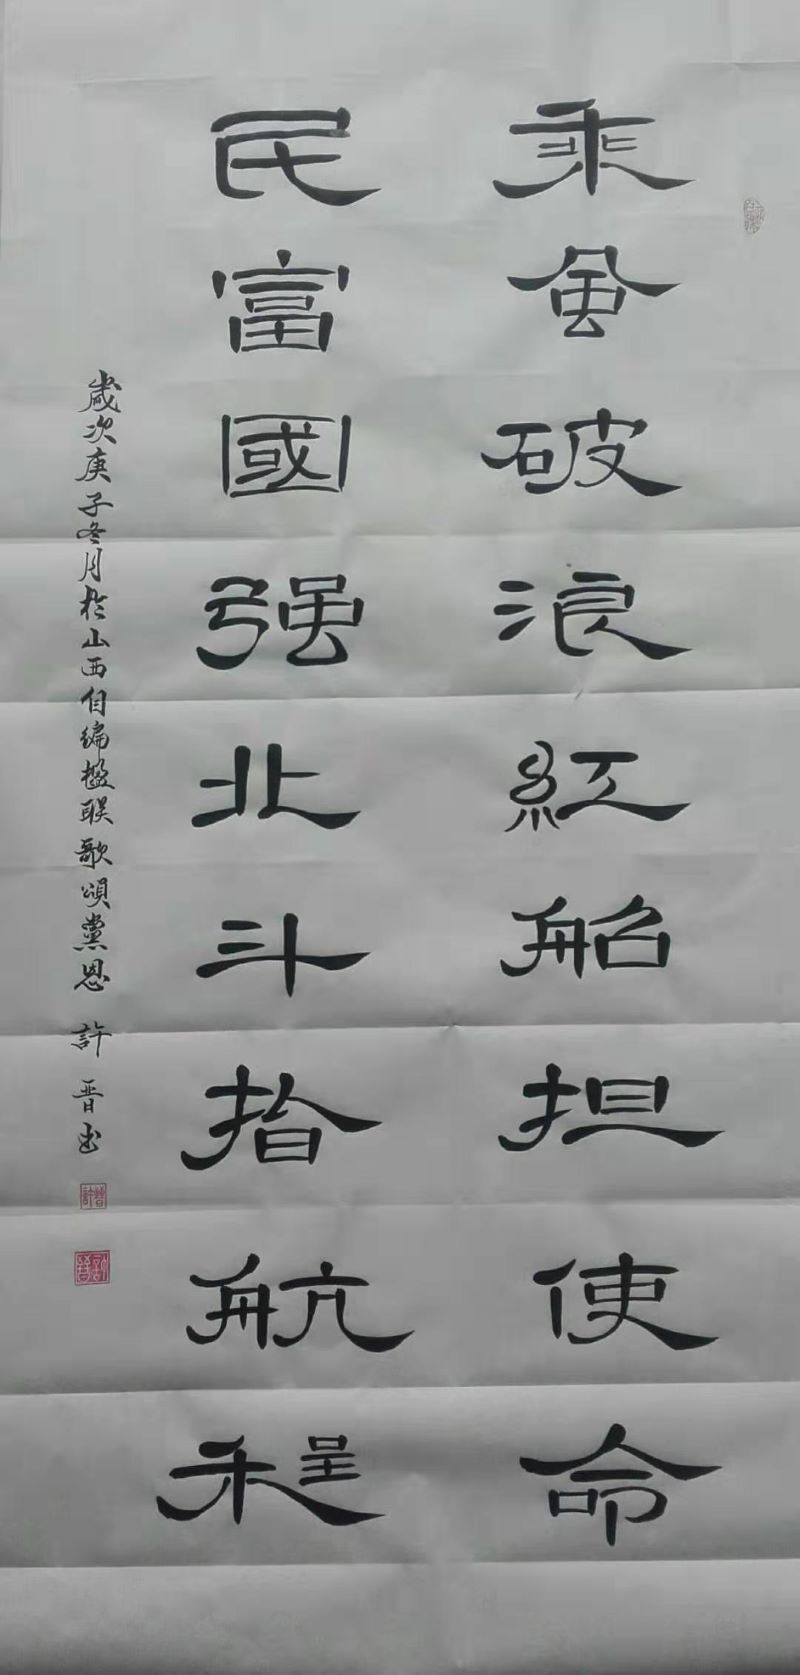 乘風破浪紅船担使命
民富國强北斗指航程
歲次庚子冬月於山西自編楹联歌頌黨恩 許晋书
許晉
許晉